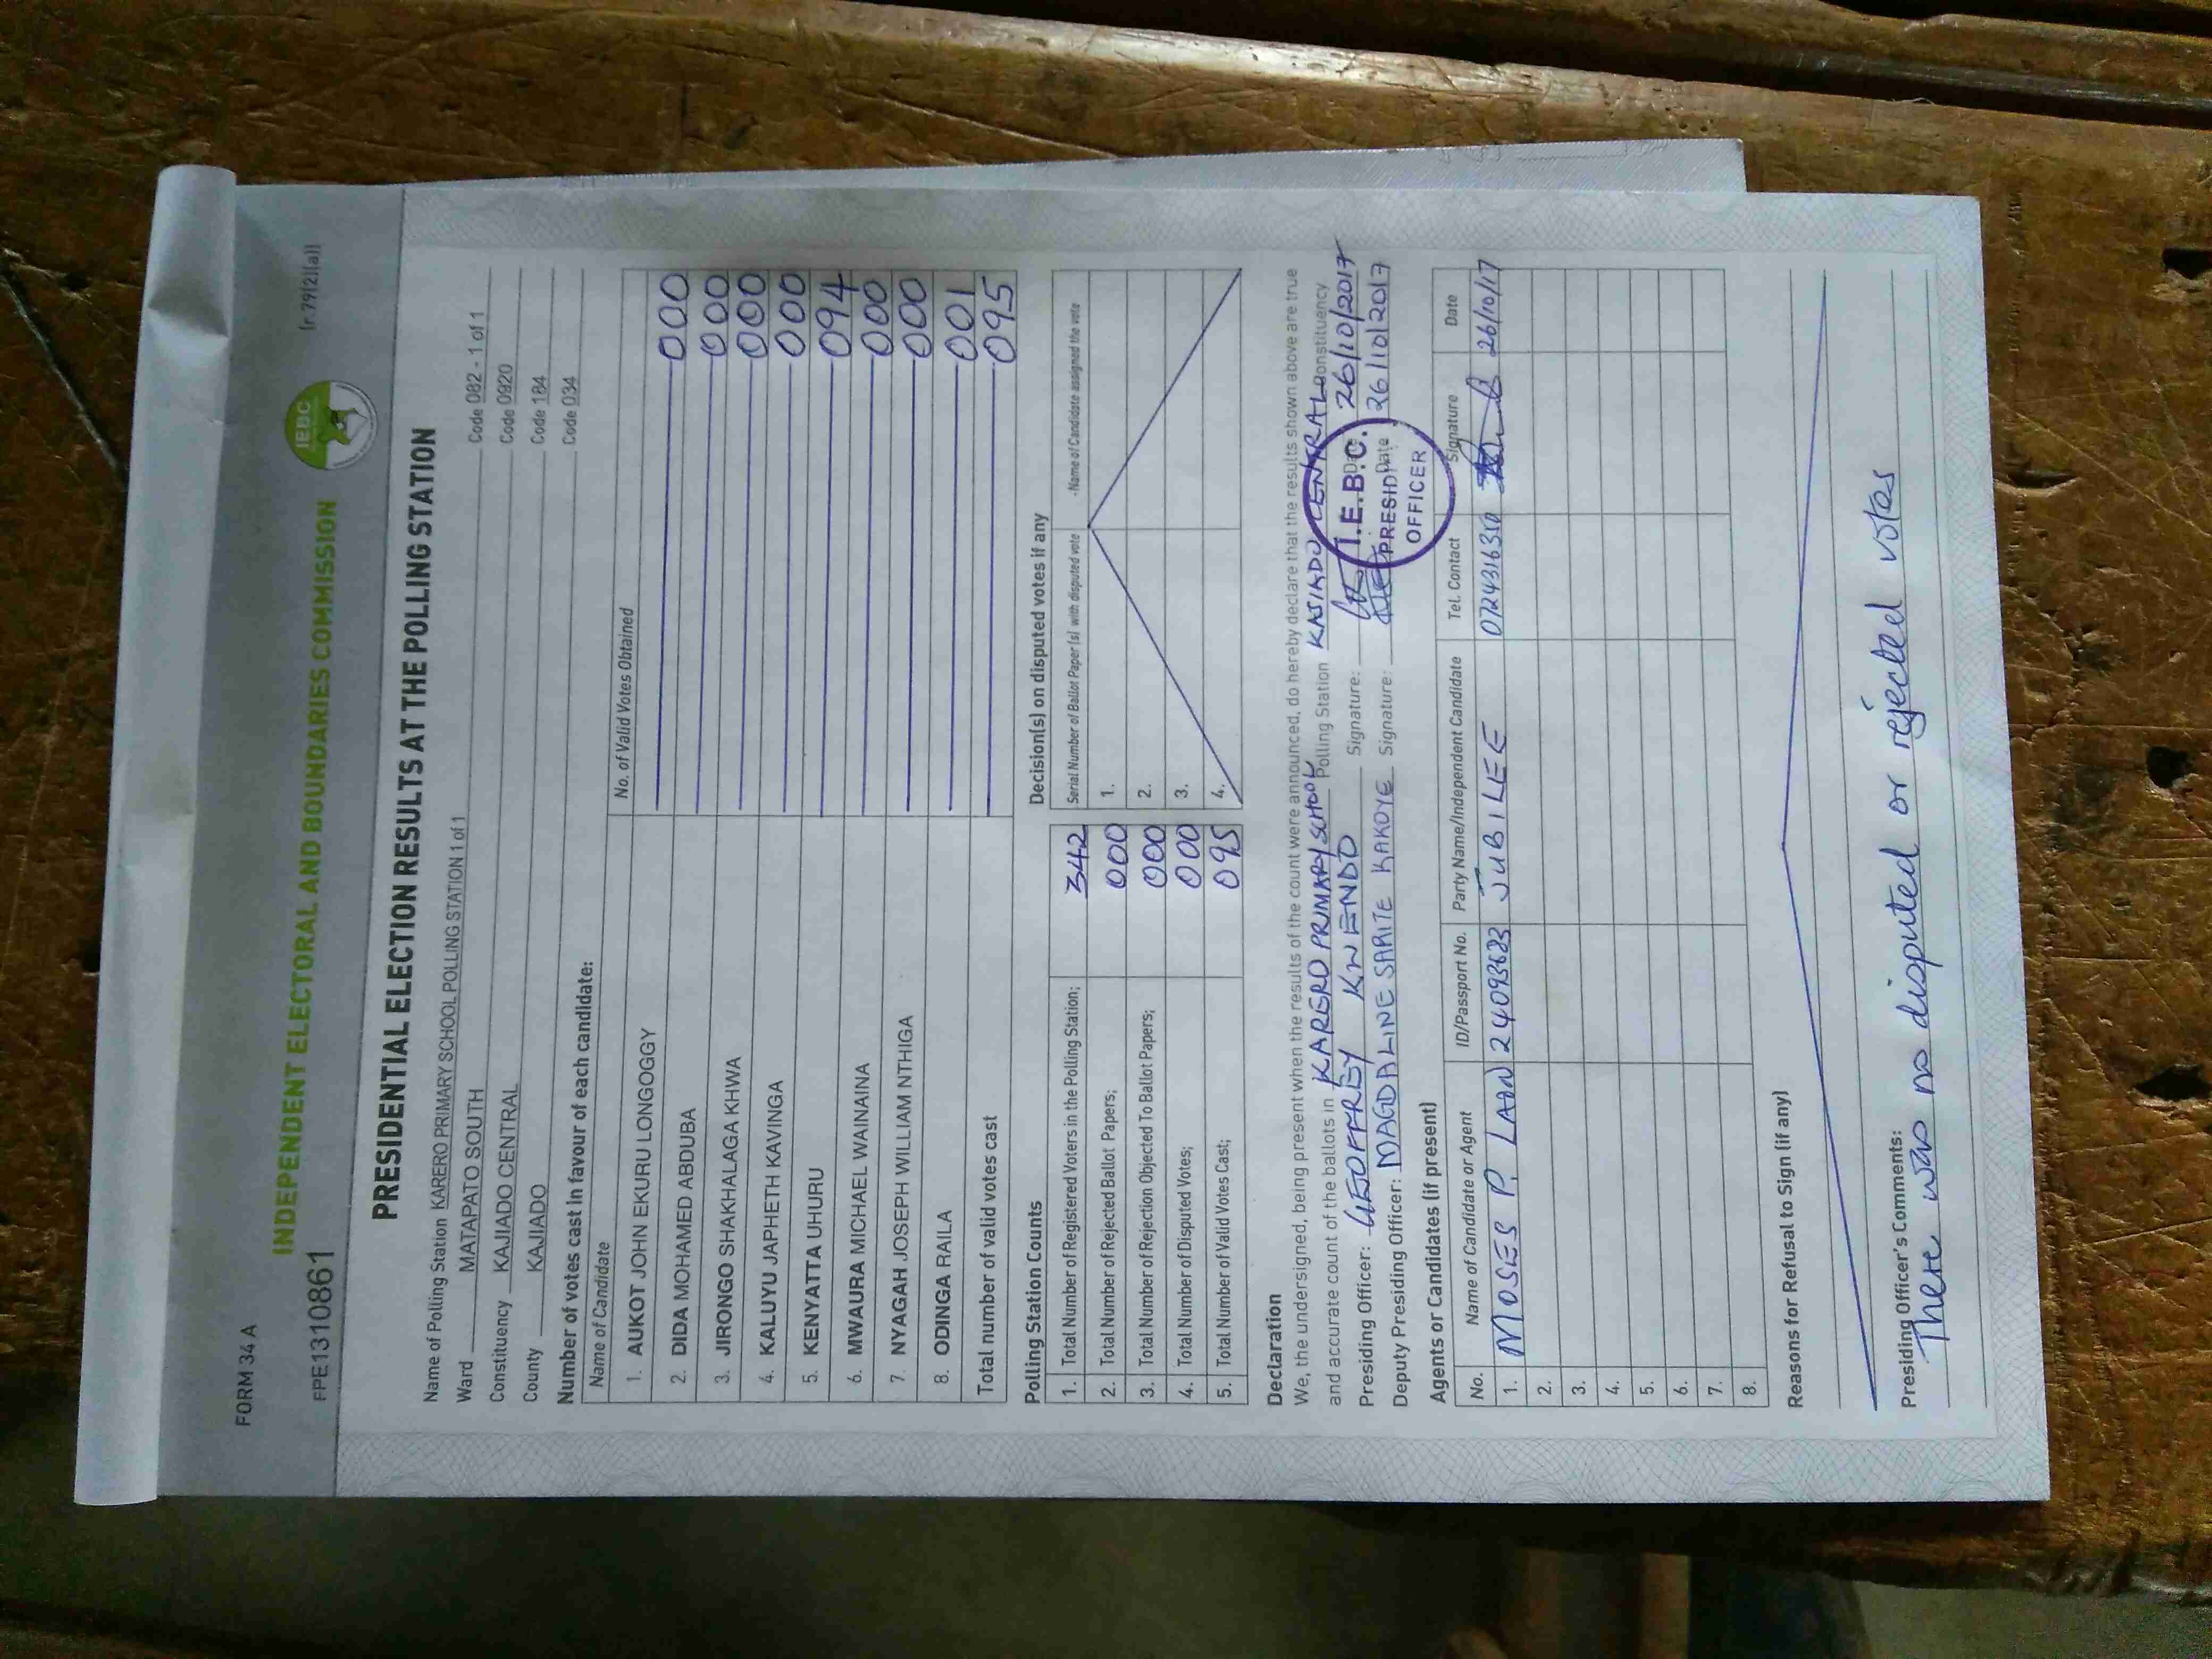 FORM 34 A
(r.79(2)(a))
IEBC
INDEPENDENT ELECTORAL AND BOUNDARIES COMMISSION
FPE1310861
PRESIDENTIAL ELECTION RESULTS AT THE POLLING STATION
Name of Polling Station KARERO PRIMARY SCHOOL POLLING STATION 1 of 1 Code 082 - 1 of 1
Ward MATAPATO SOUTH Code 0920
Constituency KAJIADO CENTRAL Code 184
County KAJIADO Code 034
Number of votes cast in favour of each candidate:
Name of Candidate No. of Valid Votes Obtained
1. AUKOT JOHN EKURU LONGOGGY 000
2. DIDA MOHAMED ABDUBA 000
3. JIRONGO SHAKHALAGA KHWA 000
4. KALUYU JAPHETH KAVINGA 000
5. KENYATTA UHURU 094
6. MWAURA MICHAEL WAINAINA 000
7. NYAGAH JOSEPH WILLIAM NTHIGA 000
8. ODINGA RAILA 001
Total number of valid votes cast 095
Polling Station Counts
1. Total Number of Registered Voters in the Polling Station; 342
2. Total Number of Rejected Ballot Papers; 000
3. Total Number of Rejection Objected To Ballot Papers; 000
4. Total Number of Disputed Votes; 000
5. Total Number of Valid Votes Cast; 095
Decision(s) on disputed votes if any
Serial Number of Ballot Paper (s) with disputed vote - Name of Candidate assigned the vote
1.
2.
3.
4.
Declaration
We, the undersigned, being present when the results of the count were announced, do hereby declare that the results shown above are true
and accurate count of the ballots in KARERO PRIMARY SCHOOL Polling Station KAJIADO CENTRAL Constituency
Presiding Officer: GEOFFREY KWENDO Signature: Date 26/10/2017
Deputy Presiding Officer: MAGDALINE SARITE KAKOYE Signature: Date 26/10/2017
I.E.B.C.
PRESIDI
OFFICER
Agents or Candidates (if present)
No. Name of Candidate or Agent ID/Passport No. Party Name/Independent Candidate Tel. Contact Signature Date
1. MOSES P. 24093623 JUBILEE 0724316350 26/10/17
2.
3.
4.
5.
6.
7.
8.
Reasons for Refusal to Sign (if any)
Presiding Officer's Comments:
There was no disputed or rejected votes